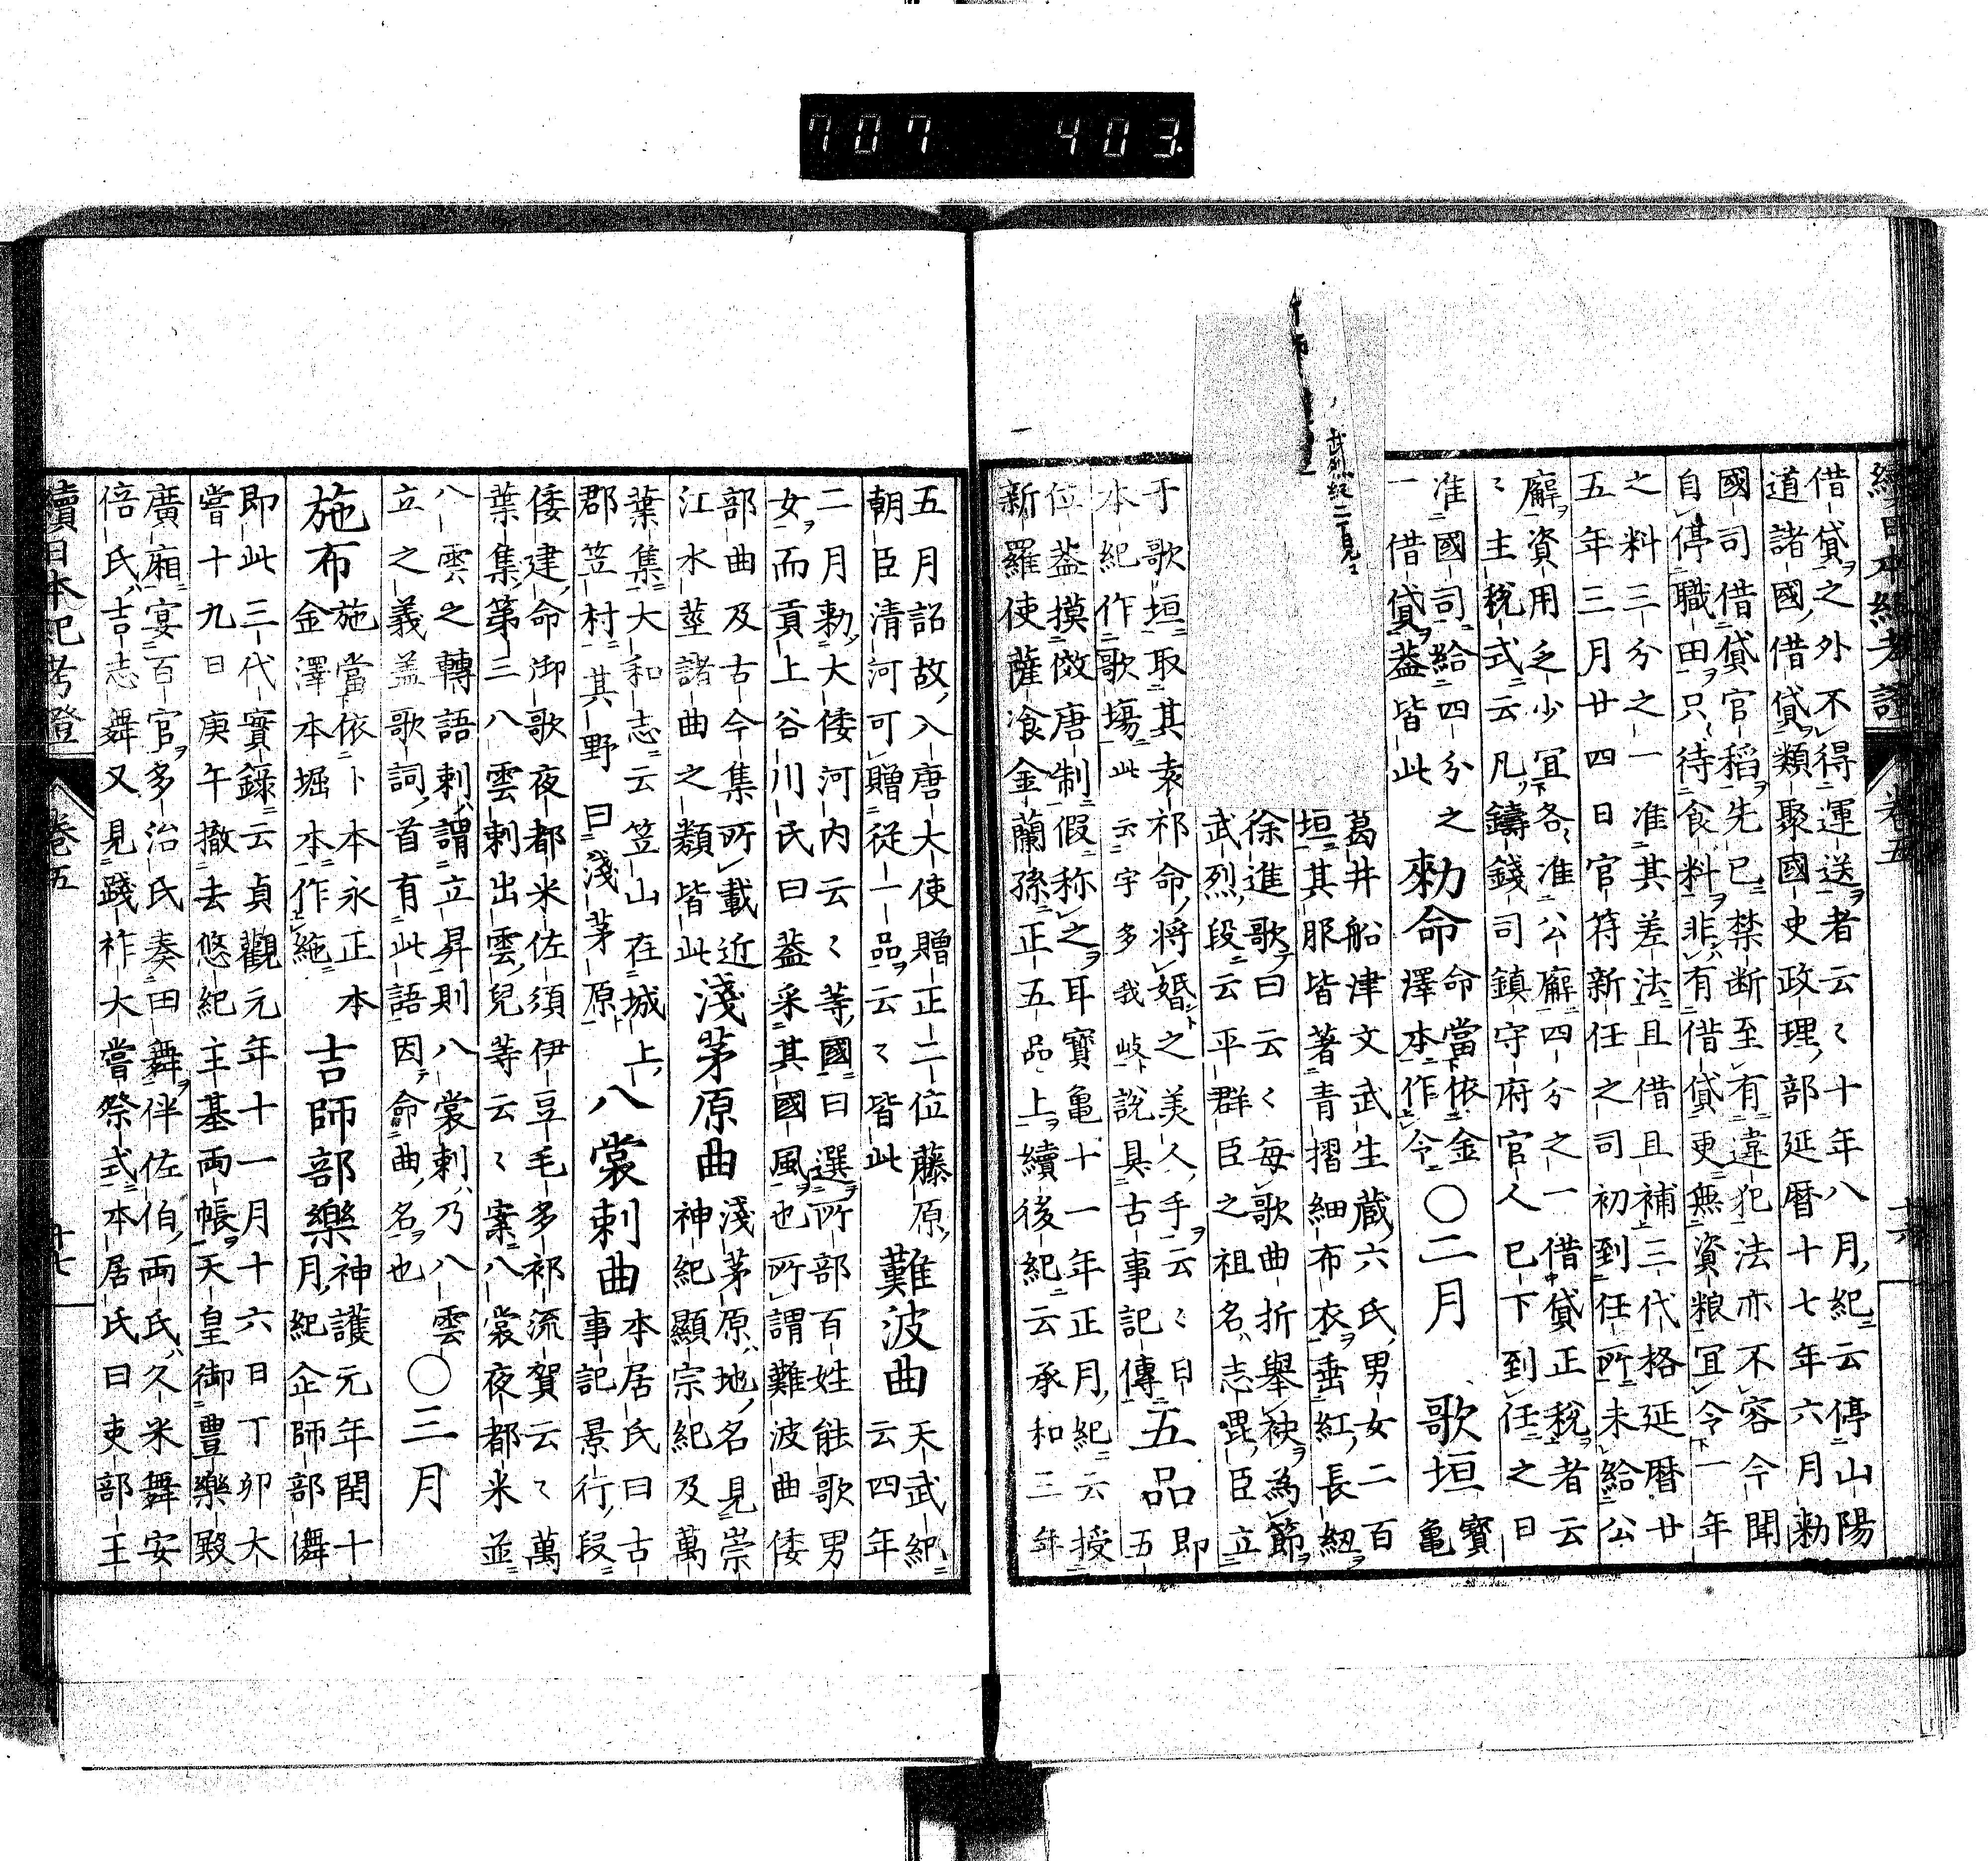 707 403.
續日本紀考證 卷五 十六
借貸之外不得運送者云〻十年八月紀云停山陽
道諸國借貸類聚國史政理部延暦十七年六月勅
國司借貸官稻先已禁断至有違犯法亦不容今聞
自停職田只待食料非有借貸更無資粮宜令一年
之料三分之一准其差法且借且補三代格延暦廿
五年三月廿四日官符新任之司初到任所未給公
廨資用乏少宜各准公廨四分之一借貸正税者云
〻主税式云凡鑄錢司鎮守府官人已下到任之日
准國司給四分之
一借貸葢皆此
勅命 命當依金
澤本作令
〇二月
歌垣 寳
亀
葛井船津文武生蔵六氏男女二百
垣其服皆著青摺細布衣垂紅長紐
徐進歌曰云〻毎歌曲折擧袂為節
武烈段云平群臣之祖名志毘臣立
武烈紀二見ユ
于歌垣取其袁祁命将婚之美人手云〻日
本紀作歌場此云宇多我岐説具古事記傳
五品 即
五
位葢摸倣唐制假称之耳寳亀十一年正月紀云授
新羅使薩飡金蘭孫正五品上續後紀云承和三年
五月詔故入唐大使贈正二位藤原
朝臣清河可贈從一品云〻皆此
難波曲 天武紀
云四年
二月勅大倭河内云〻等國曰選所部百姓能歌男
女而貢上谷川氏曰葢采其國風也所謂難波曲倭
部曲及古今集所載近
江水莖諸曲之類皆此
淺茅原曲 淺茅原地名見崇
神紀顯宗紀及萬
葉集大和志云笠山在城上
郡笠村其野曰淺茅原
八裳刺曲 本居氏曰古
事記景行段
倭建命御歌夜都米佐須伊豆毛多祁流賀云〻萬
葉集第三八雲刺出雲兒等云〻案八裳夜都米並
八雲之轉語刺謂立昇則八裳刺乃八雲
立之義盖歌詞首有此語因命曲名也
〇三月
施布 施當依卜本永正本
金澤本堀本作絁
吉師部樂 神護元年閏十
月紀企師部儛
即此三代實錄云貞觀元年十一月十六日丁卯大
嘗十九日庚午撤去悠紀主基両帳天皇御豊樂殿
廣廂宴百官多治氏奏田舞伴佐伯両氏久米舞安
倍氏吉志舞又見踐祚大嘗祭式本居氏曰吏部王
續日本紀考證 卷五 十七